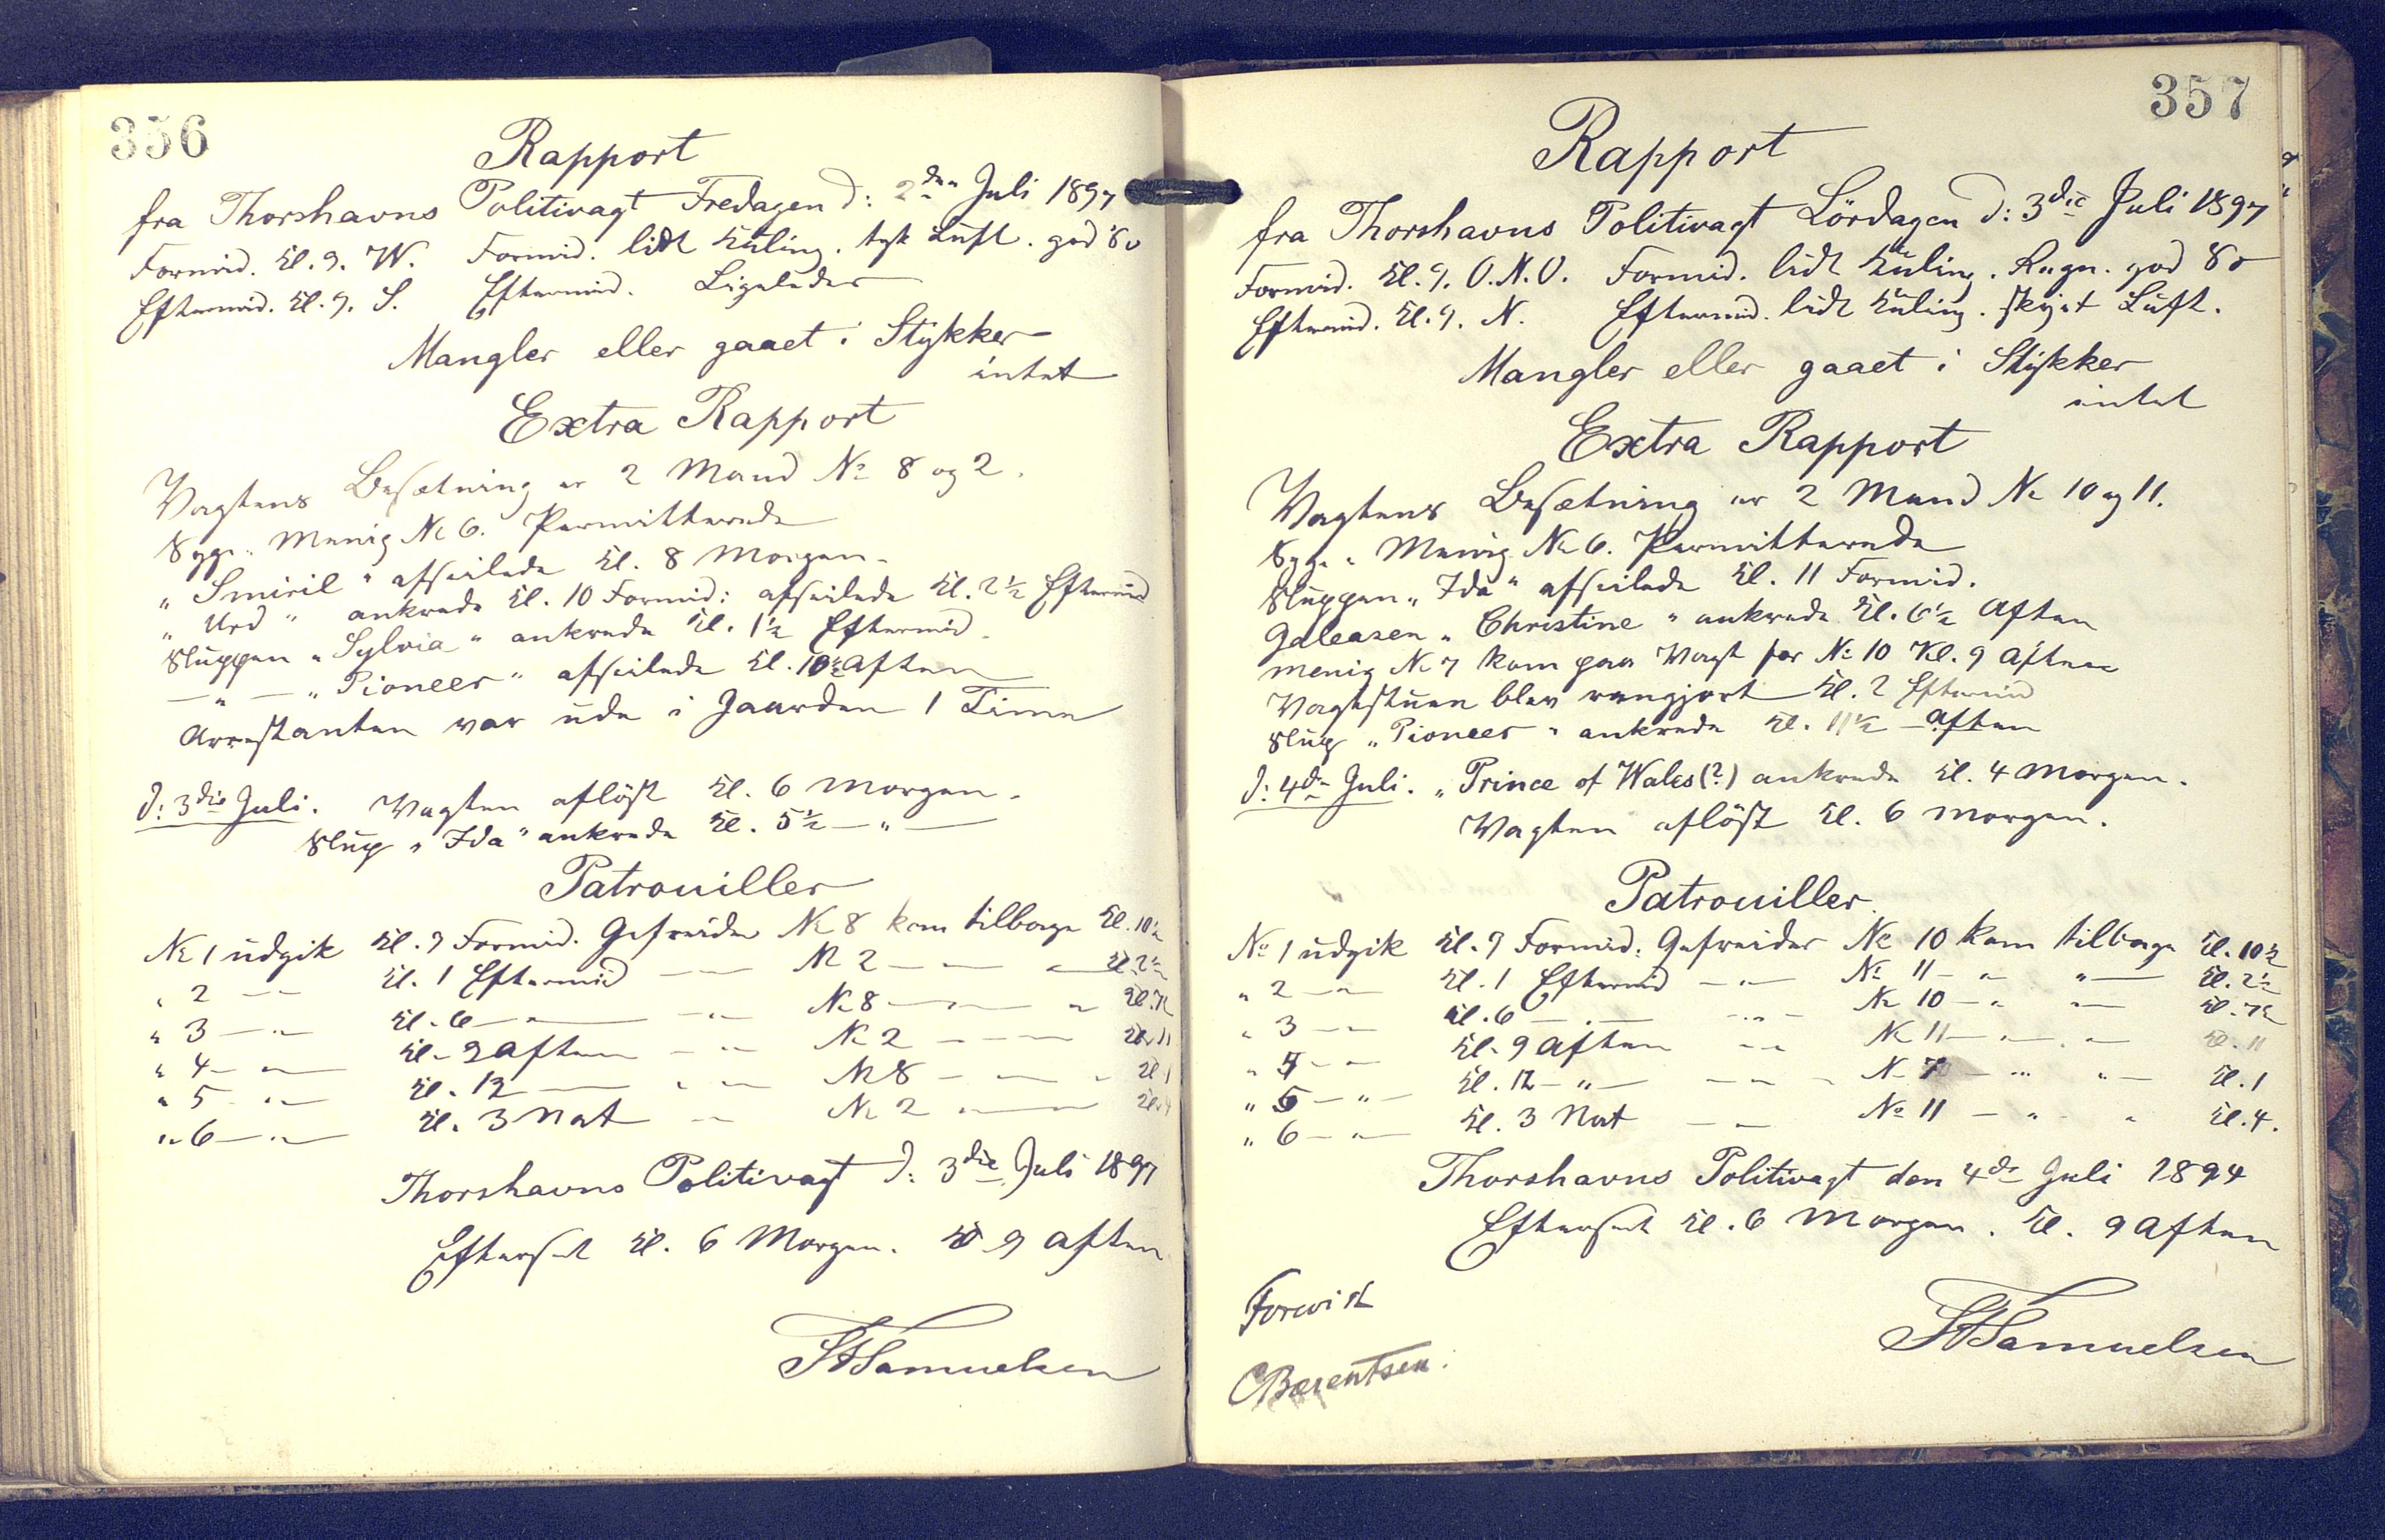 356
Rapport
fra Thorshavns Politivagt Fredagen d: 2den Juli 1897
Formid. Kl. 9. W. Formid. lidt Kuling. tyk Luft. god Sø
Eftermid. Kl. 9. S. Eftermid. Ligeledes
Mangler eller gaaet i Stykker
intet
Extra Rapport
Vagtens Besætning er 2 Mand No 8 og 2.
Syge: Menig No 6. Permitterede
"Smiril" afseilede Kl. 8 Morgen.
"Urd" ankrede Kl. 10 Formid: afseilede Kl. 2½ Eftermid
Sluppen "Sylvia" ankrede Kl. 1½ Eftermid.
— " — "Pioneer" afseilede Kl. 10½ Aften
Arrestanten var ude i Gaarden 1 Time
d: 3die Juli. Vagten afløst Kl. 6 Morgen.
Slup "Ida" ankrede Kl. 5½ — " —
Patrouiller
No 1 udgik Kl. 9 Formid. Gefreider No 8 kom tilbage Kl. 10½
" 2 — " Kl. 1 Eftermid — " — No 2 — " — " — Kl. 2½
" 3 — " Kl. 6 — " — — " No 8 — " — " Kl. 7½
" 4 — " — Kl. 9 Aften — " — No 2 — " — Kl. 11
" 5 — " — Kl. 12 — " — No 8 — " — " Kl. 1
" 6 — " — Kl. 3 Nat — " No 2 — " — Kl. 4
Thorshavns Politivagt d: 3die Juli 1897
Efterset Kl. 6 Morgen. Kl 9 Aften
Samuelsen
357
Rapport
fra Thorshavns Politivagt Lördagen d: 3die Juli 1897
Formid. Kl. 9. O.N.O. Formid. lidt Kuling. Regn. god Sø
Eftermid. Kl. 9. N. Eftermid. lidt Kuling. skyet Luft.
Mangler eller gaaet i Stykker
intet
Extra Rapport
Vagtens Besætning er 2 Mand No 10 og 11.
Syge: Menig No 6. Permitterede
Sluppen "Ida" afseilede Kl. 11 Formid.
Galeasen "Christine" ankrede Kl. 6½ Aften
Menig No 7 kom paa Vagt for No 10 Kl. 9 Aften
Vagtstuen blev rengjort Kl. 2 Eftermid
Slup "Pioneer" ankrede Kl. 11½ Aften
d: 4de Juli. "Prince of Wales (?) ankrede Kl. 4 Morgen.
Vagten afløst Kl. 6 Morgen.
Patrouiller
No 1 udgik Kl. 9 Formid: Gefreider No 10 kom tilbage Kl. 10½
" 2 — " Kl. 1 Eftermid — " — No 11 — " " — Kl. 2½
" 3 — " Kl. 6 — " — — " — No 10 — " — Kl. 7½
" 4 — " Kl. 9 Aften — " No 11 — " — " — Kl. 11
" 5 — " — Kl. 12 — " — — " — No 7 — " " — Kl. 1
" 6 — " — Kl. 3 Nat — " No 11 — " " Kl. 4.
Thorshavns Politivagt den 4de Juli 1894
Efterset Kl. 6 Morgen. Kl. 9 Aften
Forevist
Samuelsen
CBærentsen.